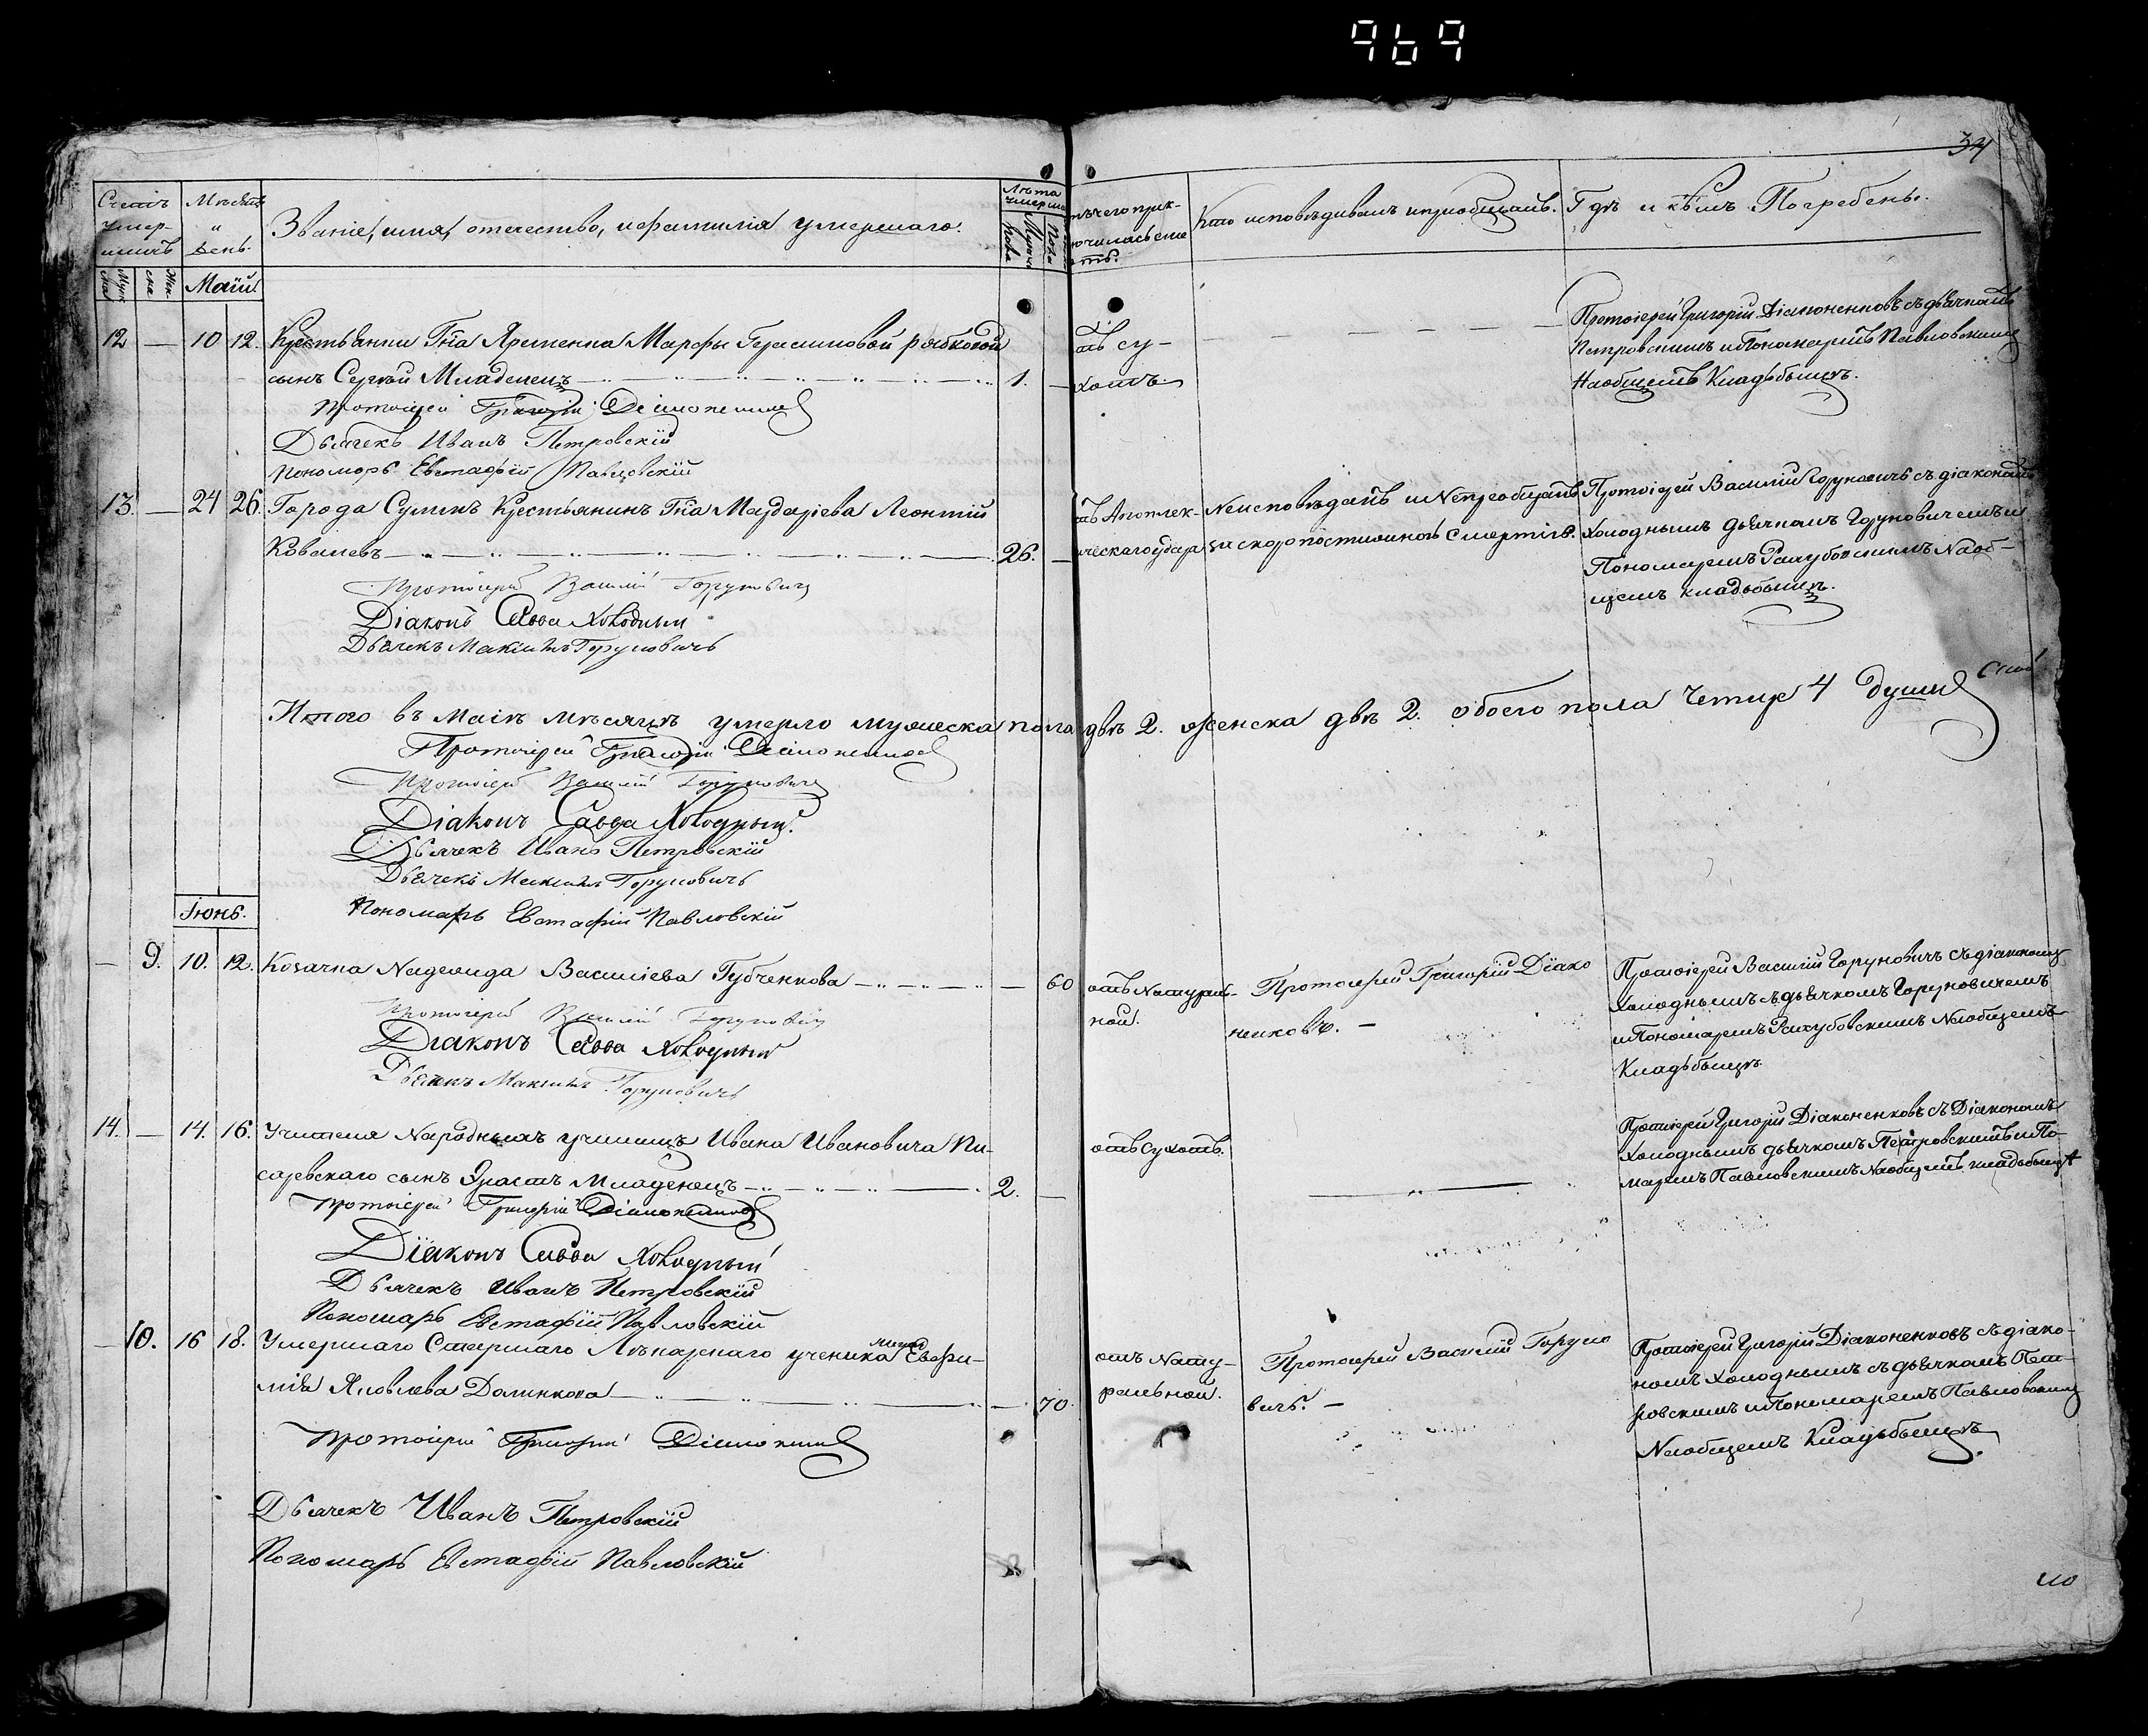 969
34
Счетъ умер-шихъ
Мѣсяцъ и День.
Званіе, имя, отечество, и фамилія умершаго.
Лѣта умерша
Мужеска Пола
отъ чего прик-лючилась сме рть.
Кто исповѣдивалъ и приобщалъ.
Гдѣ и кѣмъ Погребены.
Муж ска
Жен ска
Маій
12 — 10 12. Крестьянки Гпа Яременка Марфы Герасимовой рябковой
сынъ Сергѣй Младенецъ 1. —
отъ су-
хотъ
Протоіерей Григорій Діаконенковъ съ дьячкомъ
Петровскимъ и Пономаремъ Павловскимъ
На общемъ Кладьбыщѣ.
протоіерей Григорій Діаконенковъ
Дьячекъ Иванъ Петровскій
Пономарь Евстафій Павловскій
13. — 24 26. Города Сумъ Крестьянинъ Гпа Леонтій
Ковалевъ 26. —
отъ Апоплек-
ическаго удара
Неисповѣданъ и Непреобщенъ
за скоропостижною смертію.
Протоіерей Василій Горуновичъ съ діакономъ
Холоднымъ дьячкомъ Горуновичемъ и
Пономаремъ На об-
щемъ кладьбыщѣ.
Протоіерей Василій Горуновичъ
Діаконъ Савва Холодный
Дьячекъ Максимъ Горуновичъ
Итого въ маіѣ мѣсяцѣ умерло мужеска пола двѣ 2. женска двѣ 2. обоего пола четире 4 души
Протоіерей Григорій Діаконенковъ
Протоіерей Василій Горуновичъ
Діаконъ Савва Холодный.
Дьячекъ Иванъ Петровскій
Дьячекъ Максимъ Горуновичъ
Пономарь Евстафій Павловскій
Іюнь.
— 9. 10. 12. Козачка Надежда Василіева Губченкова — 60
отъ Натураль-
ной.
Протоіерей Григорій Діако
ненковъ. —
Протоіерей Василій Горуновичъ съ діакономъ
Холоднымъ съ дьячкомъ Горуновичемъ
и Пономаремъ На общемъ
Кладьбыщѣ
Протоіерей Василій Горуновичъ
Діаконъ Савва Холодный
Дьячекъ Максимъ Горуновичъ
14. — 14. 16. Учителя Народныхъ училищъ Ивана Ивановича Пи-
саревскаго сынъ Эрастъ Младенецъ 2. —
отъ Сухотъ.
Протоіерей Григорій Діаконенковъ съ Діакономъ
Холоднымъ дьячкомъ Петровскимъ и По-
маремъ Павловскимъ На общемъ кладьбыщѣ
протоіерей Григорій Діаконенковъ
Діаконъ Савва Холодный
Дьячекъ Иванъ Петровскій
Пономарь Евстафій Павловскій
— 10. 16 18. Умершаго Старшаго Лѣкарскаго ученика жена Евфи-
мія Яковлева Долинкова — 70.
отъ Нату-
ральной.
Протоіерей Василій Горуно
вичъ. —
Протоіерей Григорій Діаконенковъ съ діако-
номъ Холоднымъ съ дьячкомъ Пет-
ровскимъ и Пономаремъ Павловскимъ
На общемъ Кладьбыщѣ
Протоіерей Григорій Діаконенковъ
Дьячекъ Иванъ Петровскій
Пономарь Евстафій Павловскій